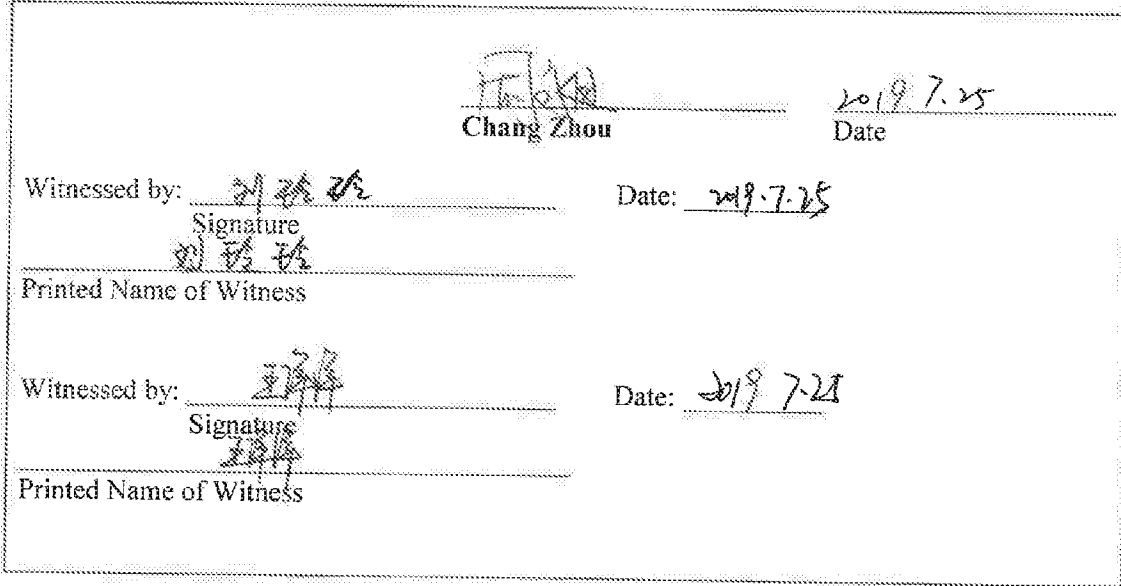 2019 7.25
Chang Zhou Date
Witnessed by: 刘玲玲 Date: 2019.7.25
Signature
刘玲玲
Printed Name of Witness
Witnessed by: 王 Date: 2019 7.25
Signature
王
Printed Name of Witness